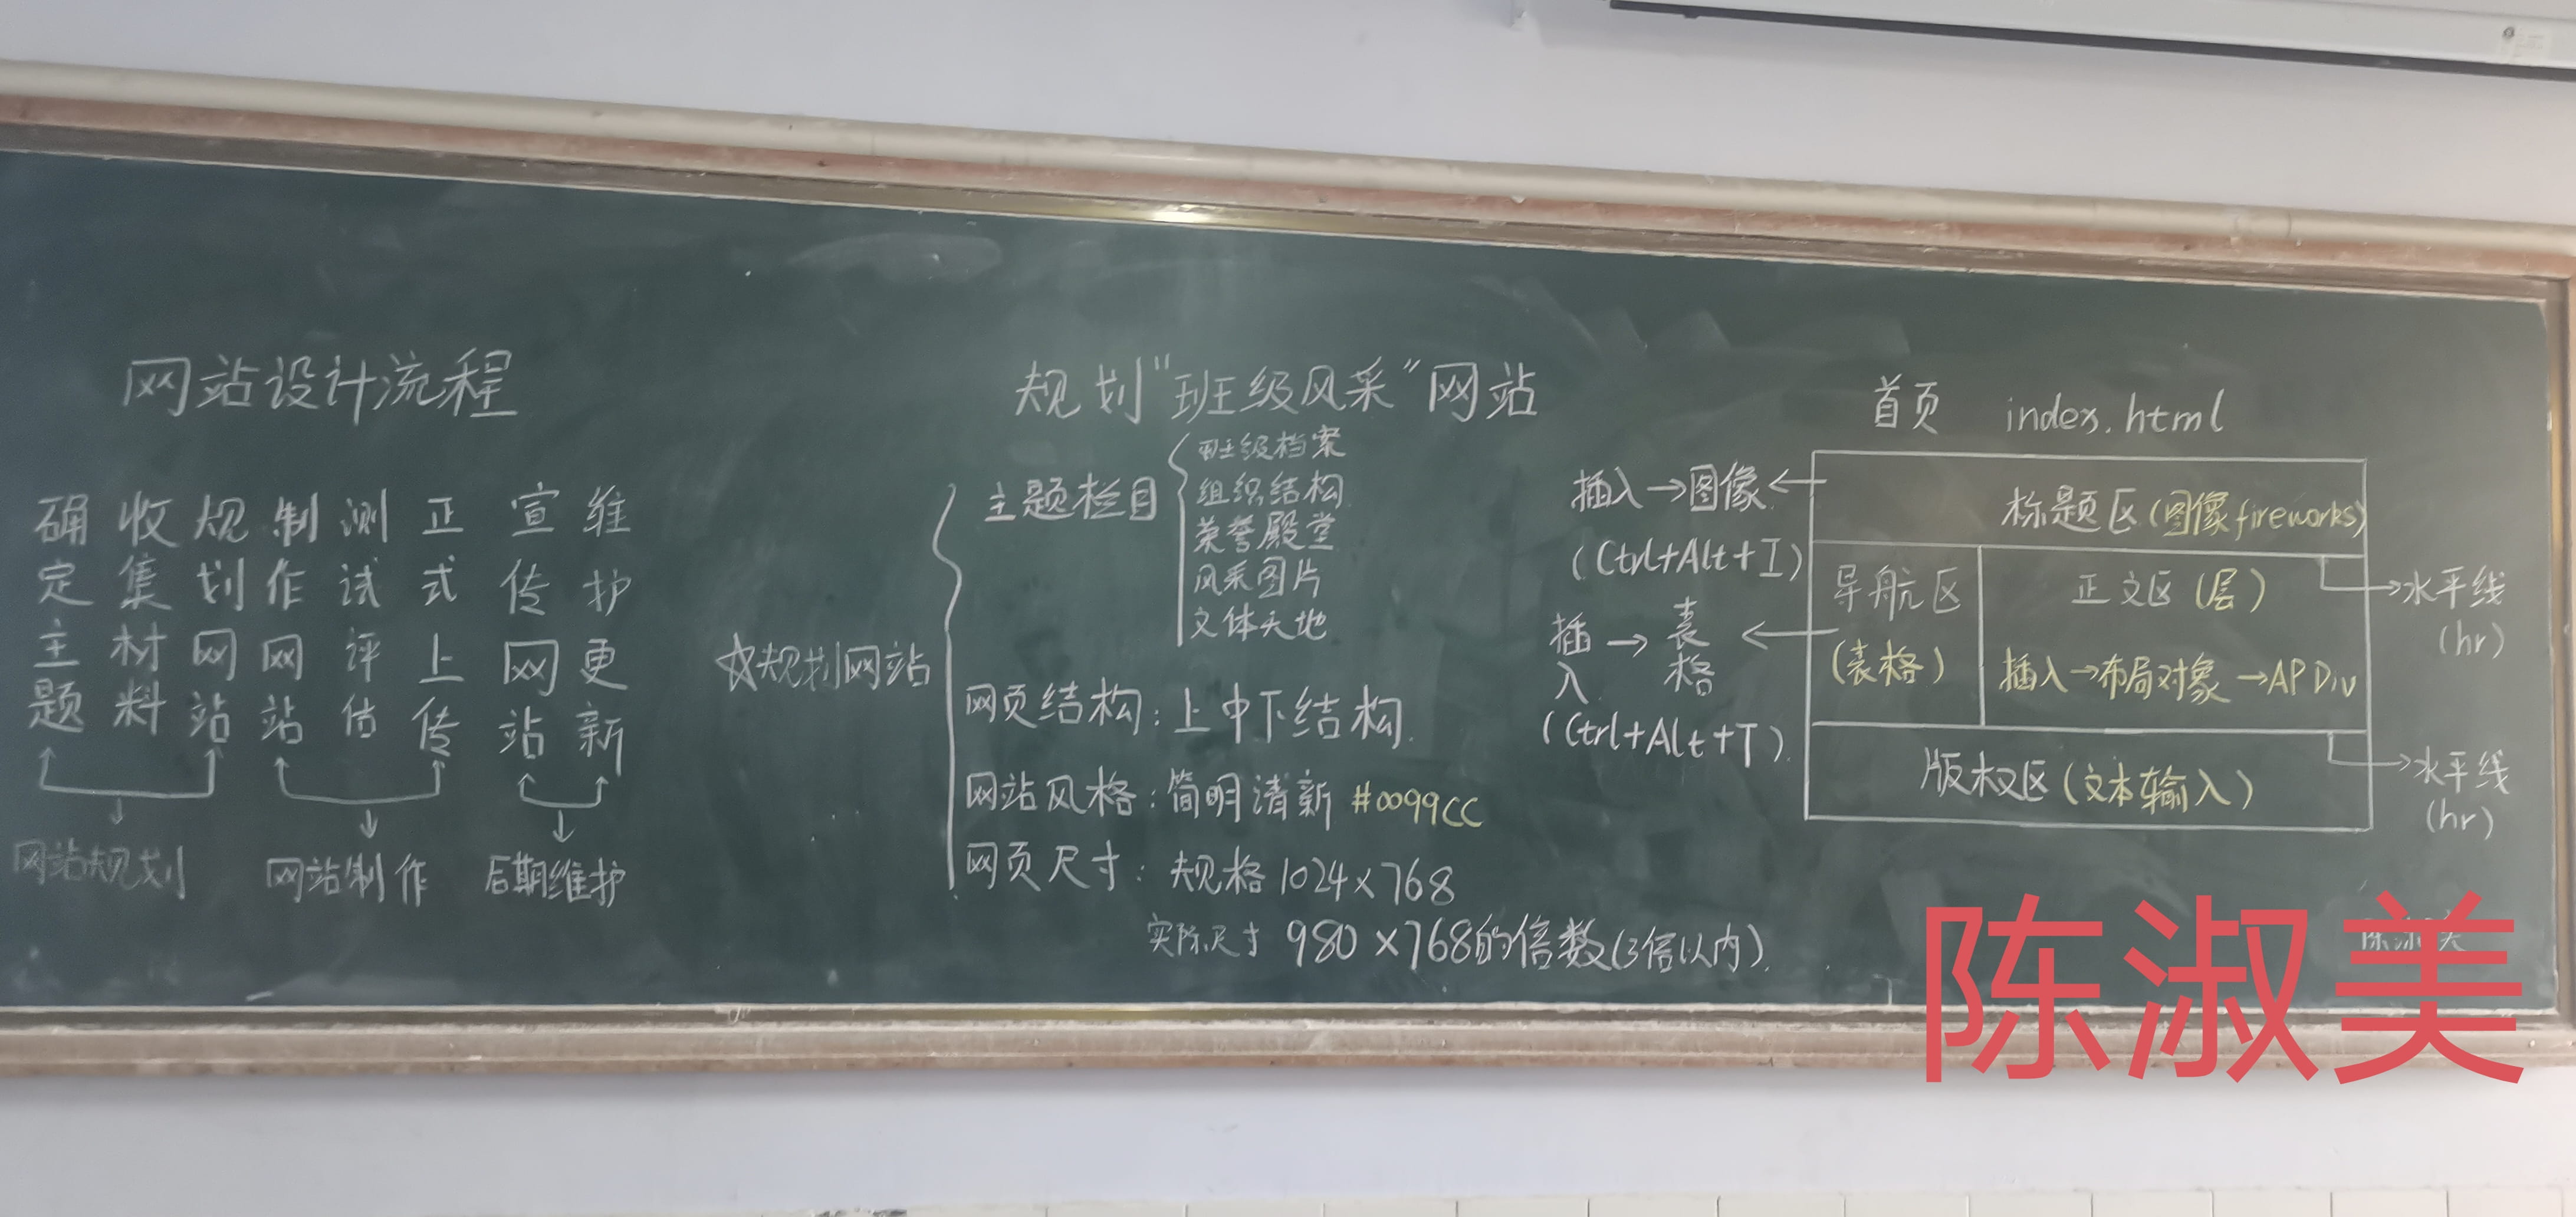 网站设计流程
确定主题
收集材料
规划网站
制作网站
测试评估
正式上传
宣传网站
维护更新
网站规划
网站制作
后期维护
规划"班级风采"网站
☆规划网站
主题栏目
班级档案
组织结构
荣誉殿堂
风采图片
文体天地
网页结构：上中下结构
网站风格：简明清新 #0099CC
网页尺寸：规格1024×768
实际尺寸 980×768的倍数(3倍以内)
首页 index.html
插入→图像←
(Ctrl+Alt+I)
插入→表格←
(Ctrl+Alt+T)
标题区(图像fireworks)
导航区
(表格)
正文区(层)
插入→布局对象→AP Div
版权区(文本输入)
→水平线
(hr)
→水平线
(hr)
陈淑美
陈淑美